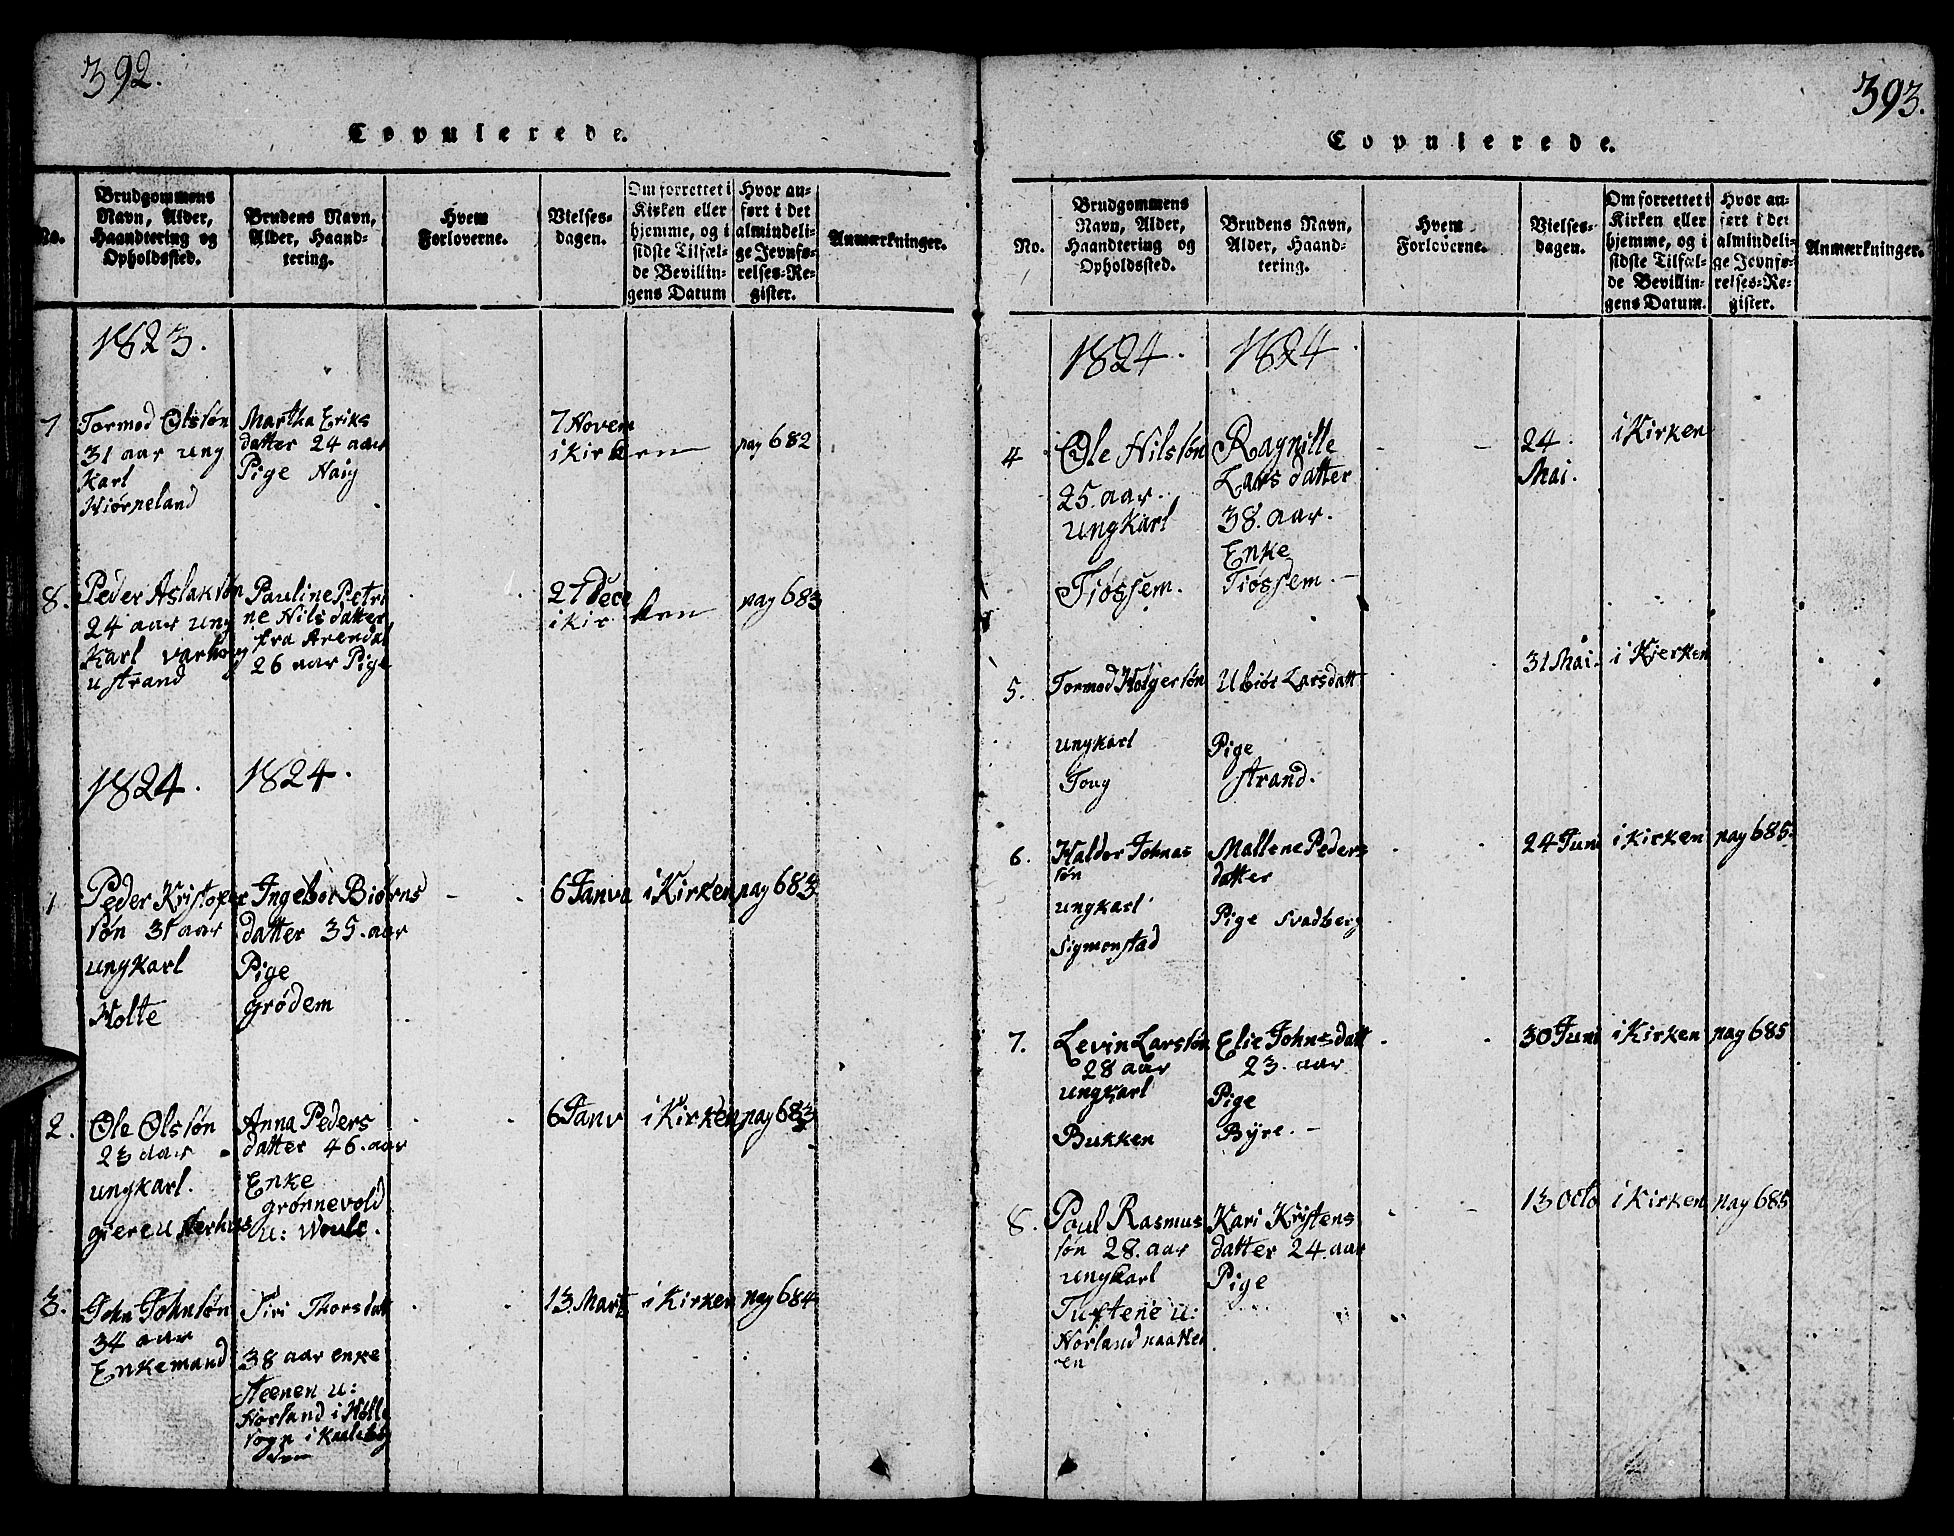 392.
Copulerede.
No.
Brudgommens Navn, Alder, Haandtering og Opholdssted.
Brudens Navn, Alder, Haandtering.
Hvem Forloverne.
Vielsesdagen.
Om forrettet i Kirken eller hjemme, og i sidste Tilfælde Bevillingens Datum
Hvor anført i det almindelige Jevnførelses-Register.
Anmærkninger.
1823.
7 Tormod Olssøn Martha Eriks 7 Novem
31 aar ung datter 24 aar i Kirken pag 682
Karl Pige Haig
Hiørneland
8. Peder Aslaksøn Pauline Petri 27 Dece
24 aar ung ne Nils datter i Kirken pag 683
Karl fra Arendal
ustrand 26 aar Pige
1824. 1824.
1 Peder Kristofer Ingebor Biørns 6 Janva i Kirken pag 683
søn 31 aar datter 35. aar
ungkarl Pige
Holte grødem
2. Ole Olssøn Anna Peders 6 Janv i Kirken pag 683
23 aar datter 46. aar
ungkarl. Enke
grønnevold
giere u:
3. John Johnsøn Siri Thorsdatt 13 Marts i Kirken pag 684
34 aar
Enkemand 38 aar enke
steenen u:
Norland i
sogn i
393.
Copulerede.
No.
Brudgommens Navn, Alder, Haandtering og Opholdssted.
Brudens Navn, Alder, Haandtering.
Hvem Forloverne.
Vielsesdagen.
Om forrettet i Kirken eller hjemme, og i sidste Tilfælde Bevillingens Datum.
Hvor anført i det almindelige Jevnførelses-Register.
Anmærkninger.
1824. 1824.
4 Ole Nilssøn Ragnille - - 24. i Kirken
25. aar. Lars datter Mai.
ungkarl 38. aar.
Enke
Tiøssem. Tiøssem. -
5. Tormod Holgersøn Ubiør Larsdatt 31 Mai. i Kierken
ungkarl Pige
Toug strand.
6. Haldor Johnas Mallene Peders 24 Juni i Kirken pag 685.
søn datter
ungkarl Pige Svadberg
Sigmonstad
7. Levin Larssøn Elie Johnsdatt 30 Juni i Kirken pag 685
28 aar 23. aar
ungkarl Pige
Bukken Byre. -
8. Paul Rasmus Kari Kristens 13 Octo i Kirken pag 685
søn 28. aar datter 24. aar
ungkarl Pige
Tuftene u:
Norland
en